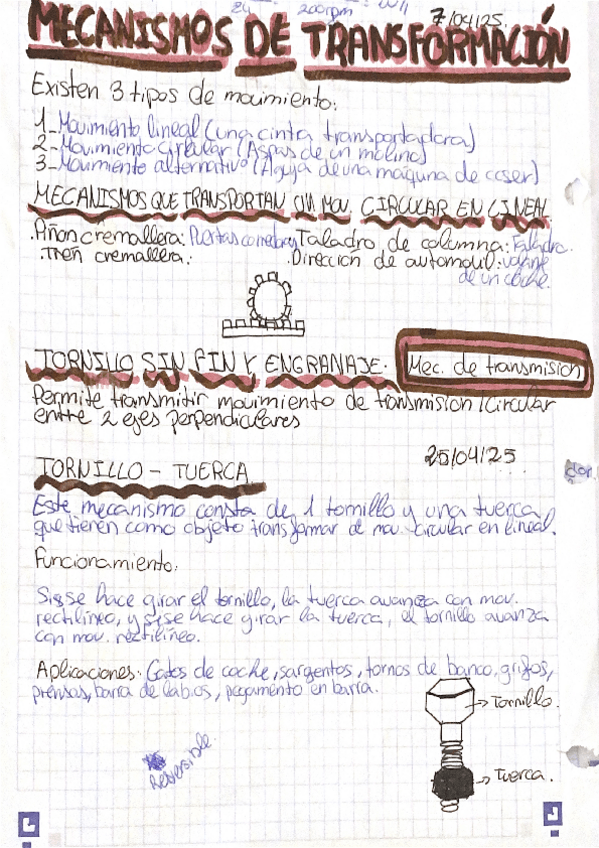 24 200rpm
7/04/25.
MECANISMOS DE TRANSFORMACIÓN
Existen 3 tipos de movimiento:
1_Movimiento lineal (una cinta transportadora)
2_Movimiento Circular (Aspas de un molino)
3_Movimiento alternativo (Aguja de una maquina de coser)
MECANISMOS QUE TRANSPORTAN MOV. CIRCULAR EN LINEAL
.Piñon cremallera: Puertas correderas Taladro de columna: Taladro.
.Tren cremallera: .Direccion de automovil: volante
de un coche.
TORNILLO SIN FIN Y ENGRANAJE. Mec. de transmision
Permite transmitir movimiento de transmision circular
entre 2 ejes perpendiculares
25/04/25
TORNILLO - TUERCA
Este mecanismo consta de 1 tornillo y una tuerca
que tienen como objeto transformar de mov. circular en lineal.
Funcionamiento:
Si se hace girar el tornillo, la tuerca avanza con mov.
rectilíneo, y si se hace girar la tuerca, el tornillo avanza
con mov. rectilíneo.
Aplicaciones: Gatos de coche, sargentos, tornos de banco, grifos,
prensas, barra de labios, pegamento en barra.
Tornillo.
Reversible.
Tuerca.